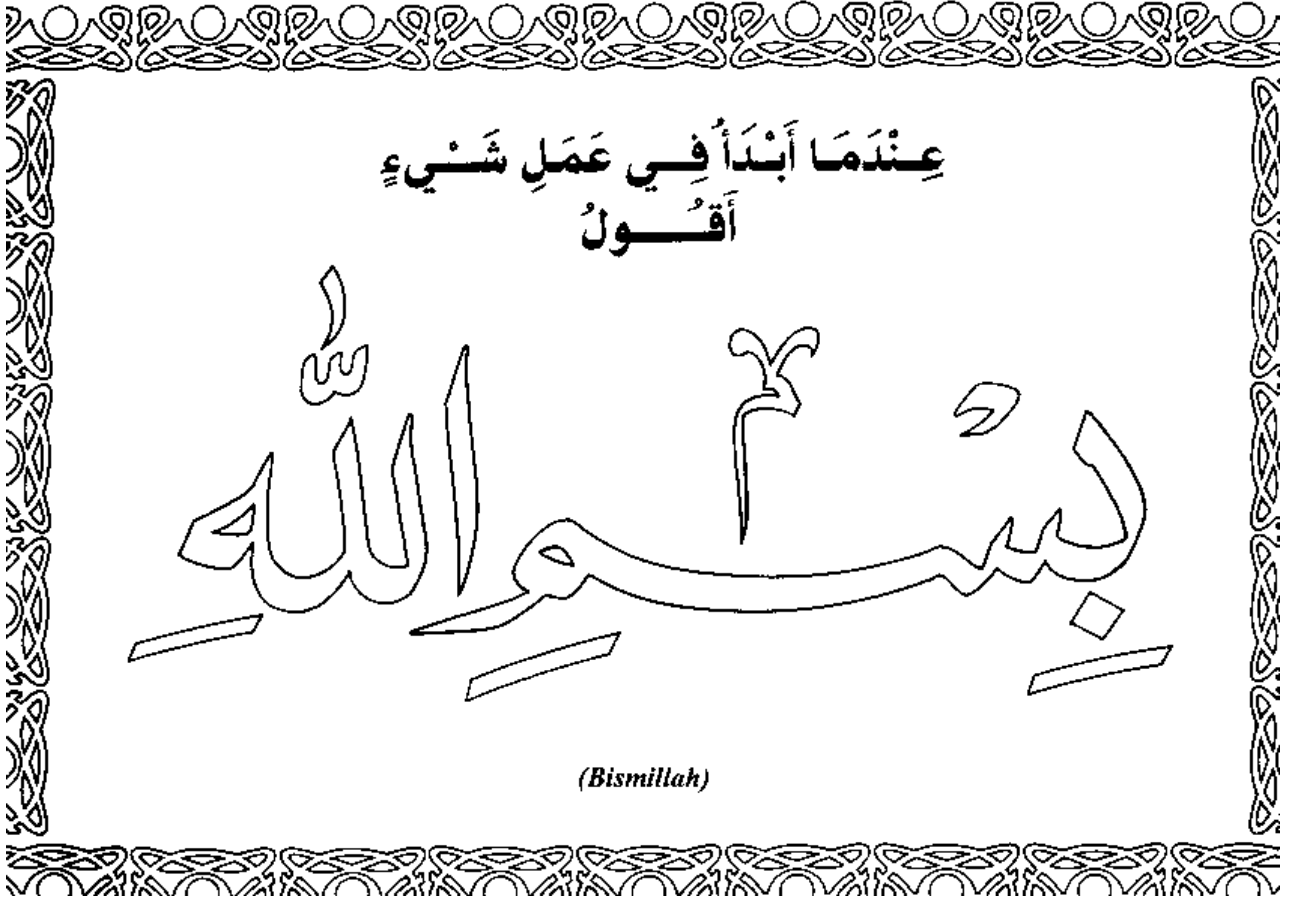 عِنْدَمَا أَبْدَأُ فِي عَمَلِ شَيْءٍ
أَقُولُ
بِسْمِ اللّٰهِ
(Bismillah)